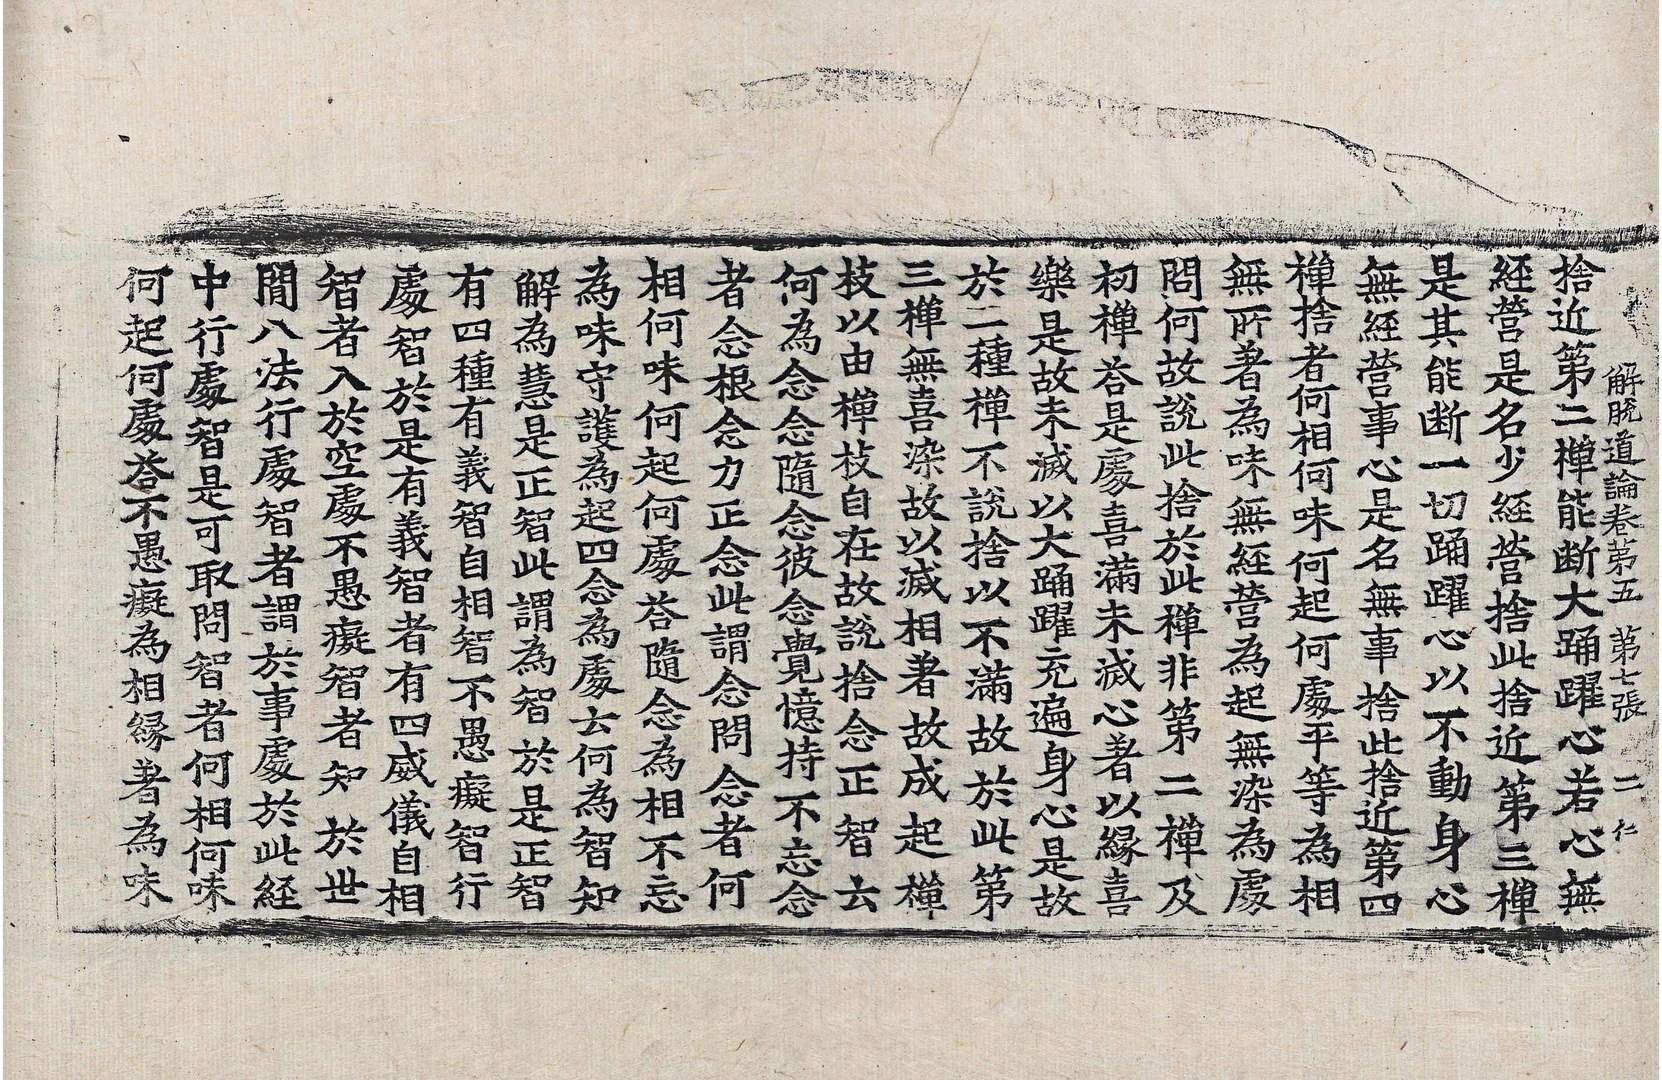 解脫道論卷第五　第七張　二　仁
捨近第二禪能断大踊躍心若心無
経營是名少経營捨此捨近第三禪
是其能断一切踊躍心以不動身心
無経營事心是名無事捨此捨近第四
禪捨者何相何味何起何處平等為相
無所著為味無経營為起無染為處
問何故說此捨於此禪非第二禪及
初禪荅是處喜滿未滅心著以縁喜
樂是故未滅以大踊躍充遍身心是故
於二種禪不說捨以不滿故於此第
三禪無喜染故以滅相著故成起禪
枝以由禪枝自在故說捨念正智云
何為念念隨念彼念覺憶持不忘念
者念根念力正念此謂念問念者何
相何味何起何處荅隨念為相不忘
為味守護為起四念為處云何為智知
解為慧是正智此謂為智於是正智
有四種有義智自相智不愚癡智行
處智於是有義智者有四威儀自相
智者入於空處不愚癡智者知於世
間八法行處智者謂於事處於此経
中行處智是可取問智者何相何味
何起何處荅不愚癡為相縁著為味